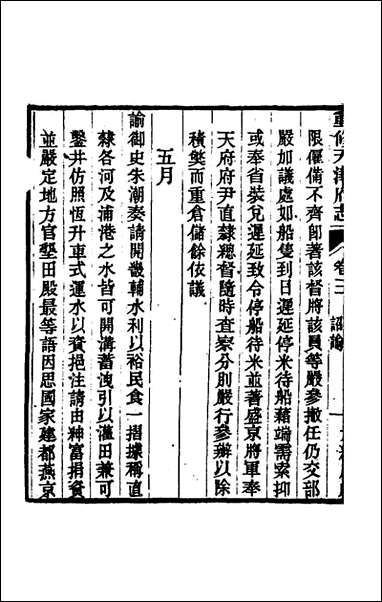 重修天津府志 卷三 詔諭 一
限僱備不齊卽著該督將該員等嚴參撤任仍交部
嚴加議處如船隻到日遲延停米待船藉端需索抑
或奉省裝兌遲延致令停船待米並著盛京將軍奉
天府府尹直隸總督隨時查察分別嚴行參辦以除
積獘而重倉儲餘依議
五月
諭御史朱潮奏請開畿輔水利以裕民食一摺據稱直
隸各河及浦港之水皆可開溝蓄洩引以灌田兼可
鑿井仿照恆升車式運水以資挹注請由紳富捐資
並嚴定地方官墾田殿最等語因思國家建都燕京